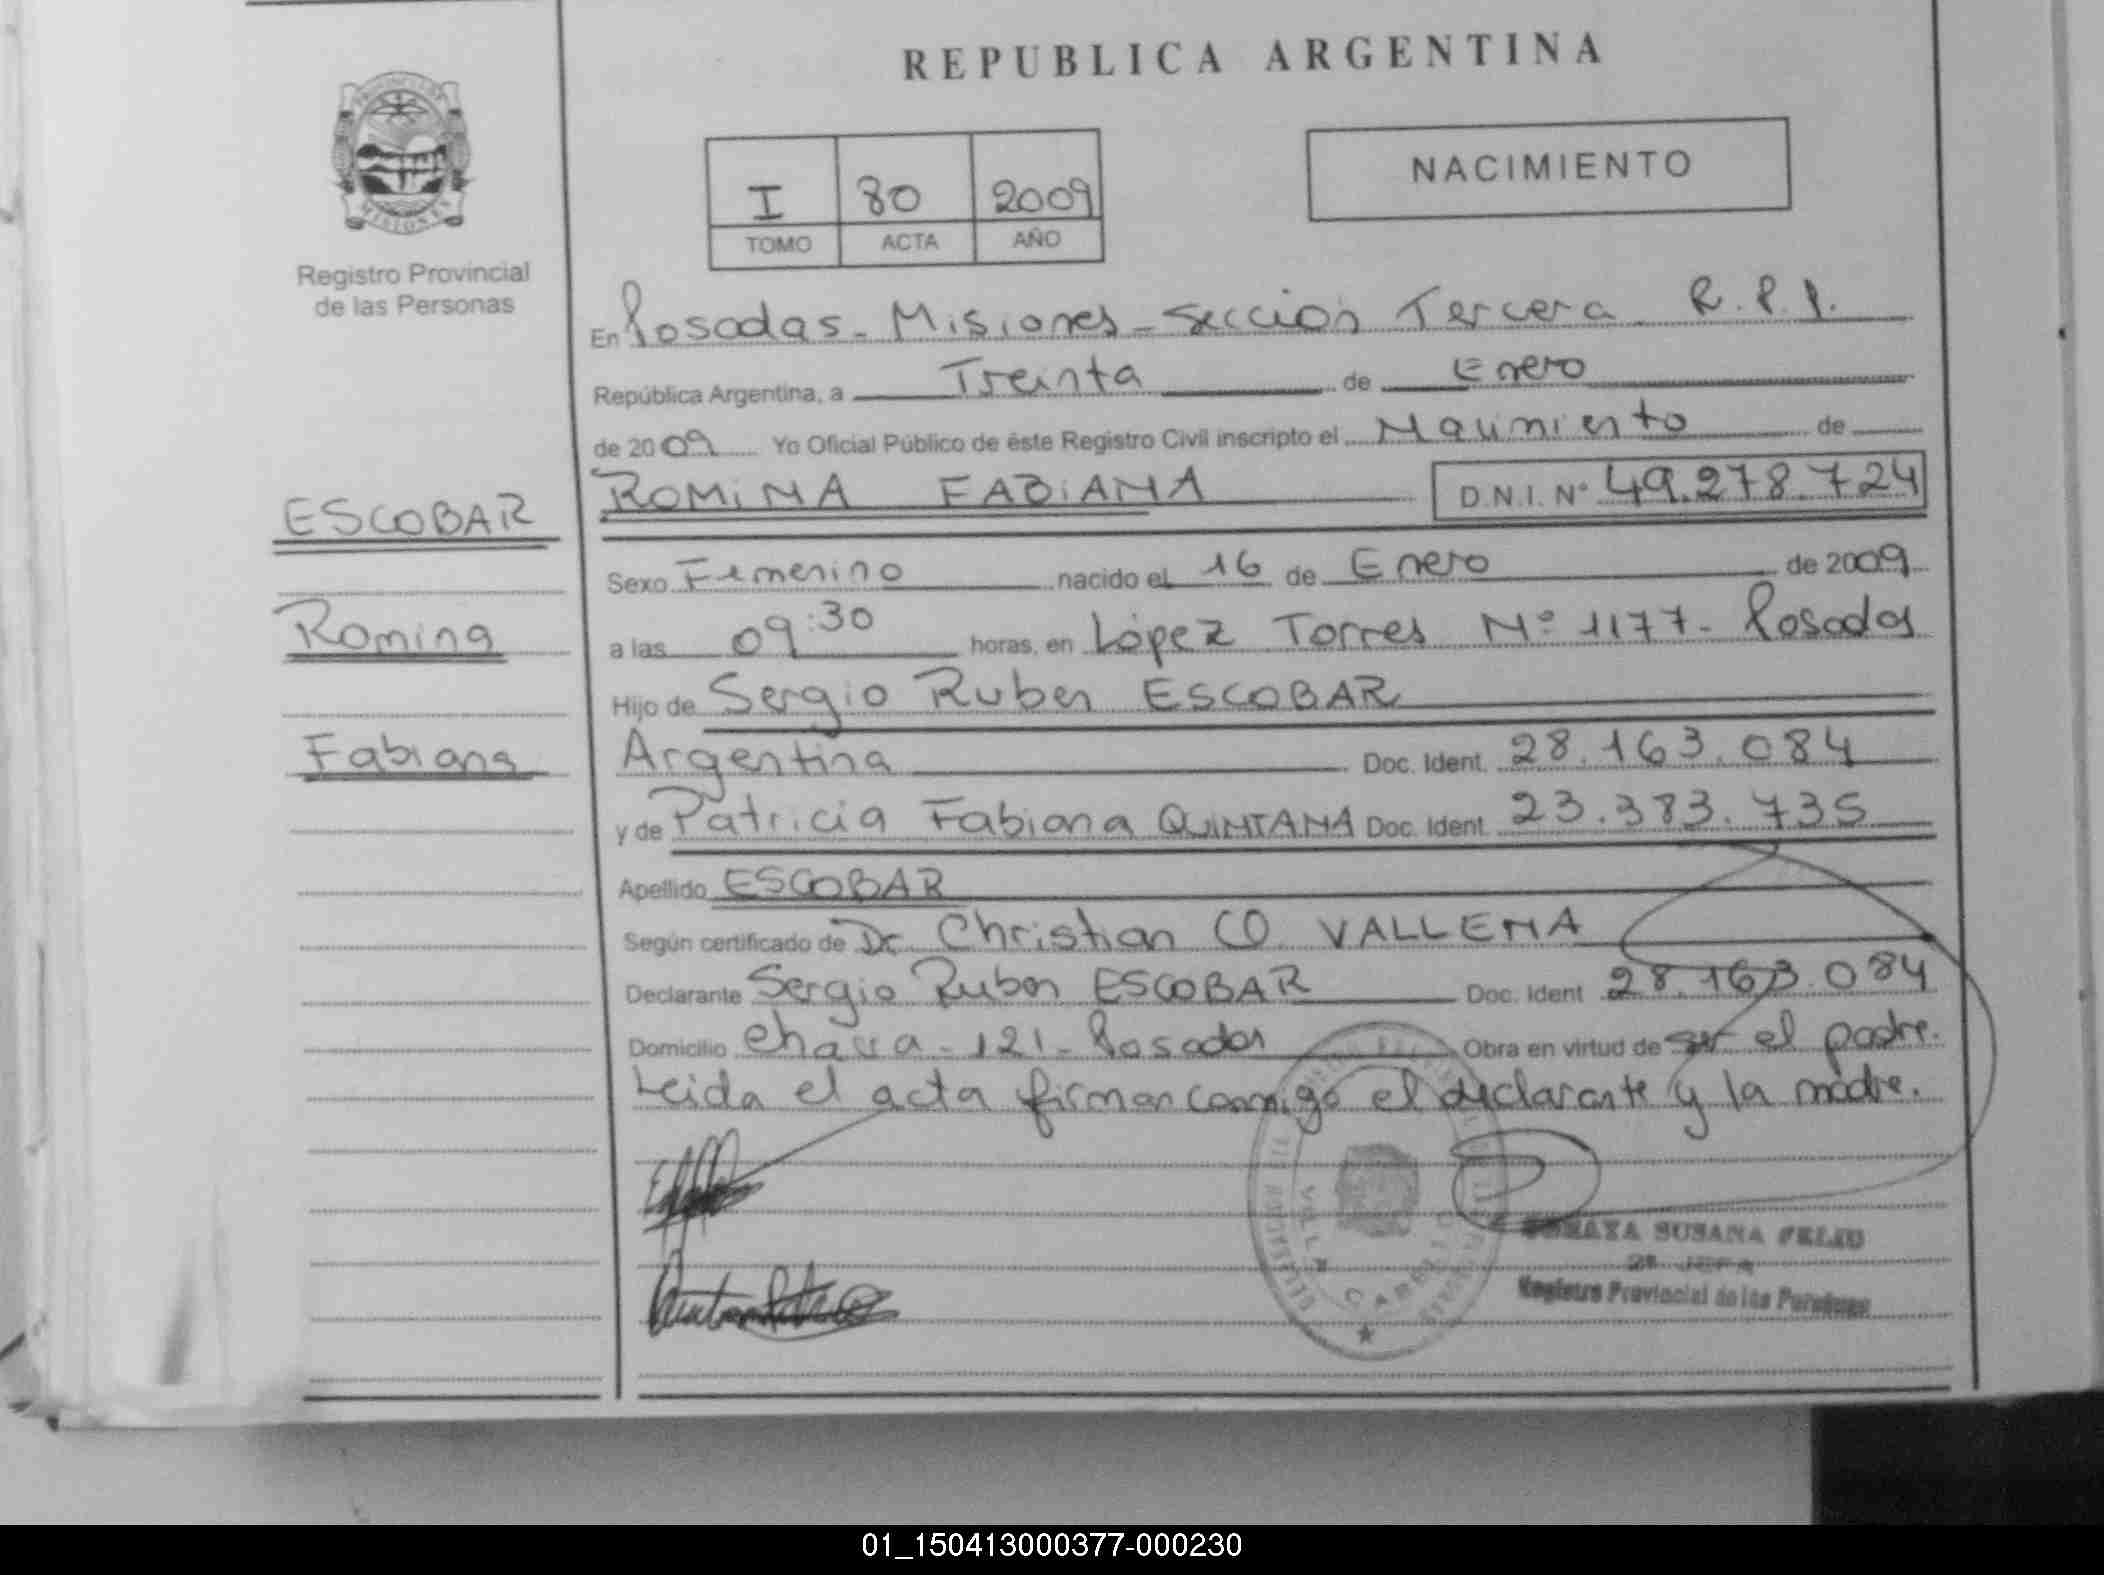 REPUBLICA ARGENTINA
PROVINCIA DE MISIONES
Registro Provincial
de las Personas
I 80 2009
TOMO ACTA AÑO
NACIMIENTO
En Posadas - Misiones - Sección Tercera R.P.P.
República Argentina, a Treinta de Enero
de 2009 Yo Oficial Público de éste Registro Civil inscripto el Nacimiento de
ROMINA FABIANA D.N.I. Nº 49.278.724
ESCOBAR
Romina
Fabiana
Sexo Femenino nacido el 16 de Enero de 2009
a las 09:30 horas, en López Torres Nº 1177 - Posadas
Hijo de Sergio Ruben ESCOBAR
Argentina Doc. Ident. 28.163.084
y de Patricia Fabiana QUINTANA Doc. Ident. 23.383.735
Apellido ESCOBAR
Según certificado de Dr. Christian O. VALLENA
Declarante Sergio Ruben ESCOBAR Doc. Ident 28.163.084
Domicilio - 121 - Posadas Obra en virtud de ser el padre.
Leida el acta firman conmigo el declarante y la madre.
VILLA CABELLO
SUSANA FELIU
2º JEFA
Registro Provincial de las Personas
01_150413000377-000230